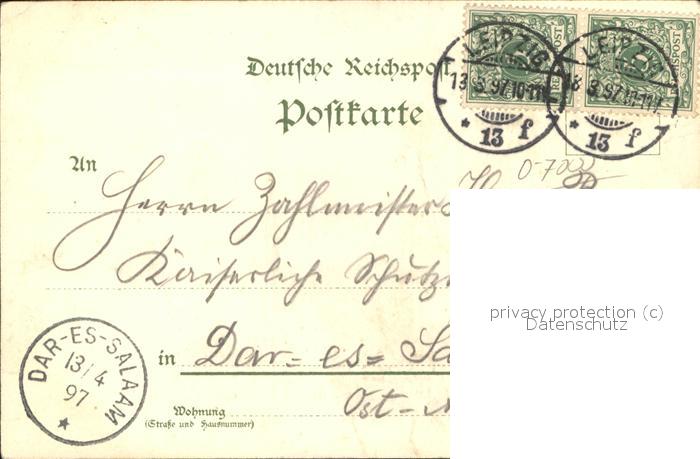 Deutsche Reichspost
Postkarte
LEIPZIG
13 3 97 10-11
* 13 f
LEIPZIG
13 3 97 10-11
* 13 f
REICHSPOST
An
Herrn Zahlmeister
0-7000
Kaiserliche Schutz
privacy protection (c)
Datenschutz
DAR-ES-SALAAM
13/4
97
*
in Dar-es=Sa
Ost-
Wohnung
(Straße und Hausnummer)